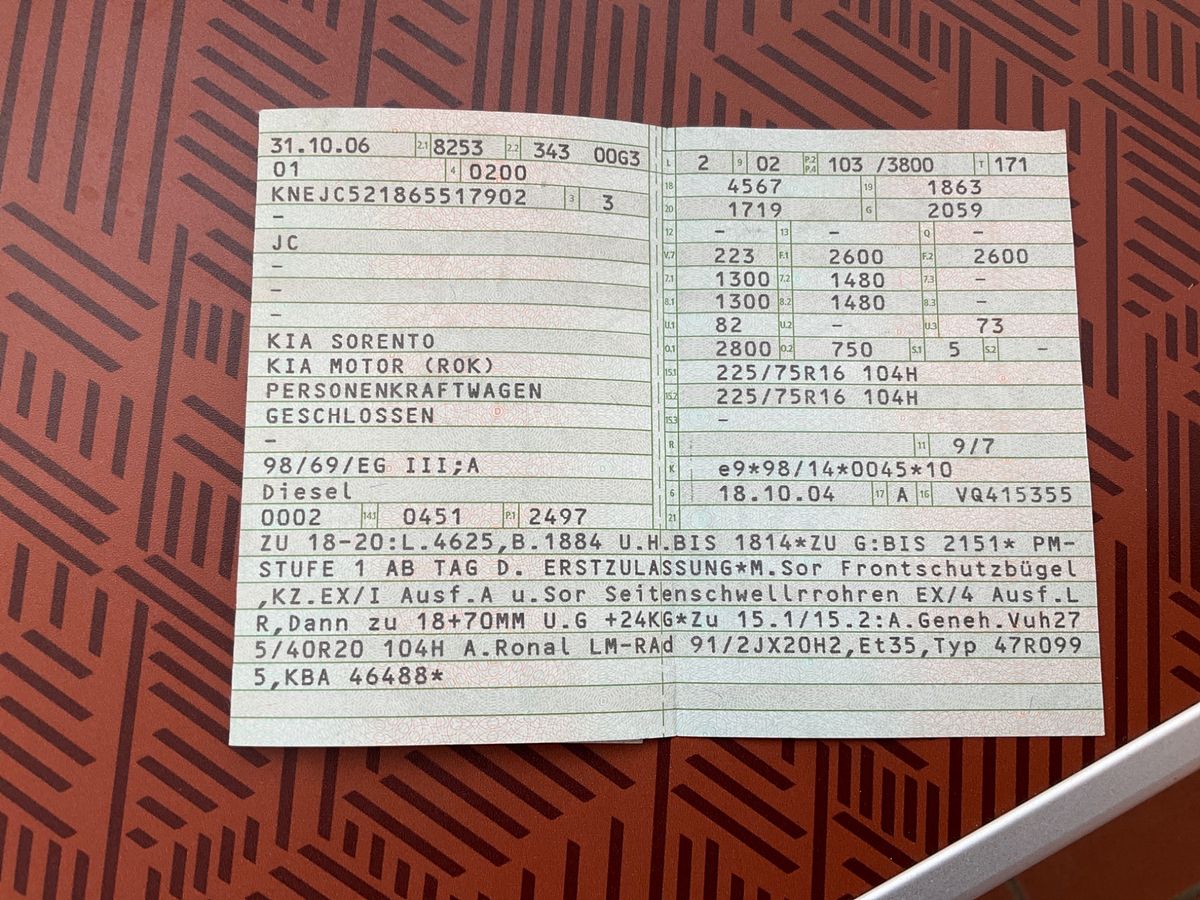 31.10.06 2.1 8253 2.2 343 00G3
01 4 0200
KNEJC521865517902 3 3
–
JC
–
–
–
KIA SORENTO
KIA MOTOR (ROK)
PERSONENKRAFTWAGEN
GESCHLOSSEN
–
98/69/EG III;A
Diesel
0002 14.1 0451 P.1 2497
L 2 9 02 P.2 P.4 103 /3800 T 171
18 4567 19 1863
20 1719 G 2059
12 – 13 – Q –
V.7 223 F.1 2600 F.2 2600
7.1 1300 7.2 1480 7.3 –
8.1 1300 8.2 1480 8.3 –
U.1 82 U.2 – U.3 73
O.1 2800 O.2 750 S.1 5 S.2 –
15.1 225/75R16 104H
15.2 225/75R16 104H
15.3 –
R 11 9/7
K e9*98/14*0045*10
6 18.10.04 17 A 16 VQ415355
21
ZU 18-20:L.4625,B.1884 U.H.BIS 1814*ZU G:BIS 2151* PM-
STUFE 1 AB TAG D. ERSTZULASSUNG*M.Sor Frontschutzbügel
,KZ.EX/I Ausf.A u.Sor Seitenschwellrrohren EX/4 Ausf.L
R,Dann zu 18+70MM U.G +24KG*Zu 15.1/15.2:A.Geneh.Vuh27
5/40R20 104H A.Ronal LM-RAd 91/2JX20H2,Et35,Typ 47R099
5,KBA 46488*